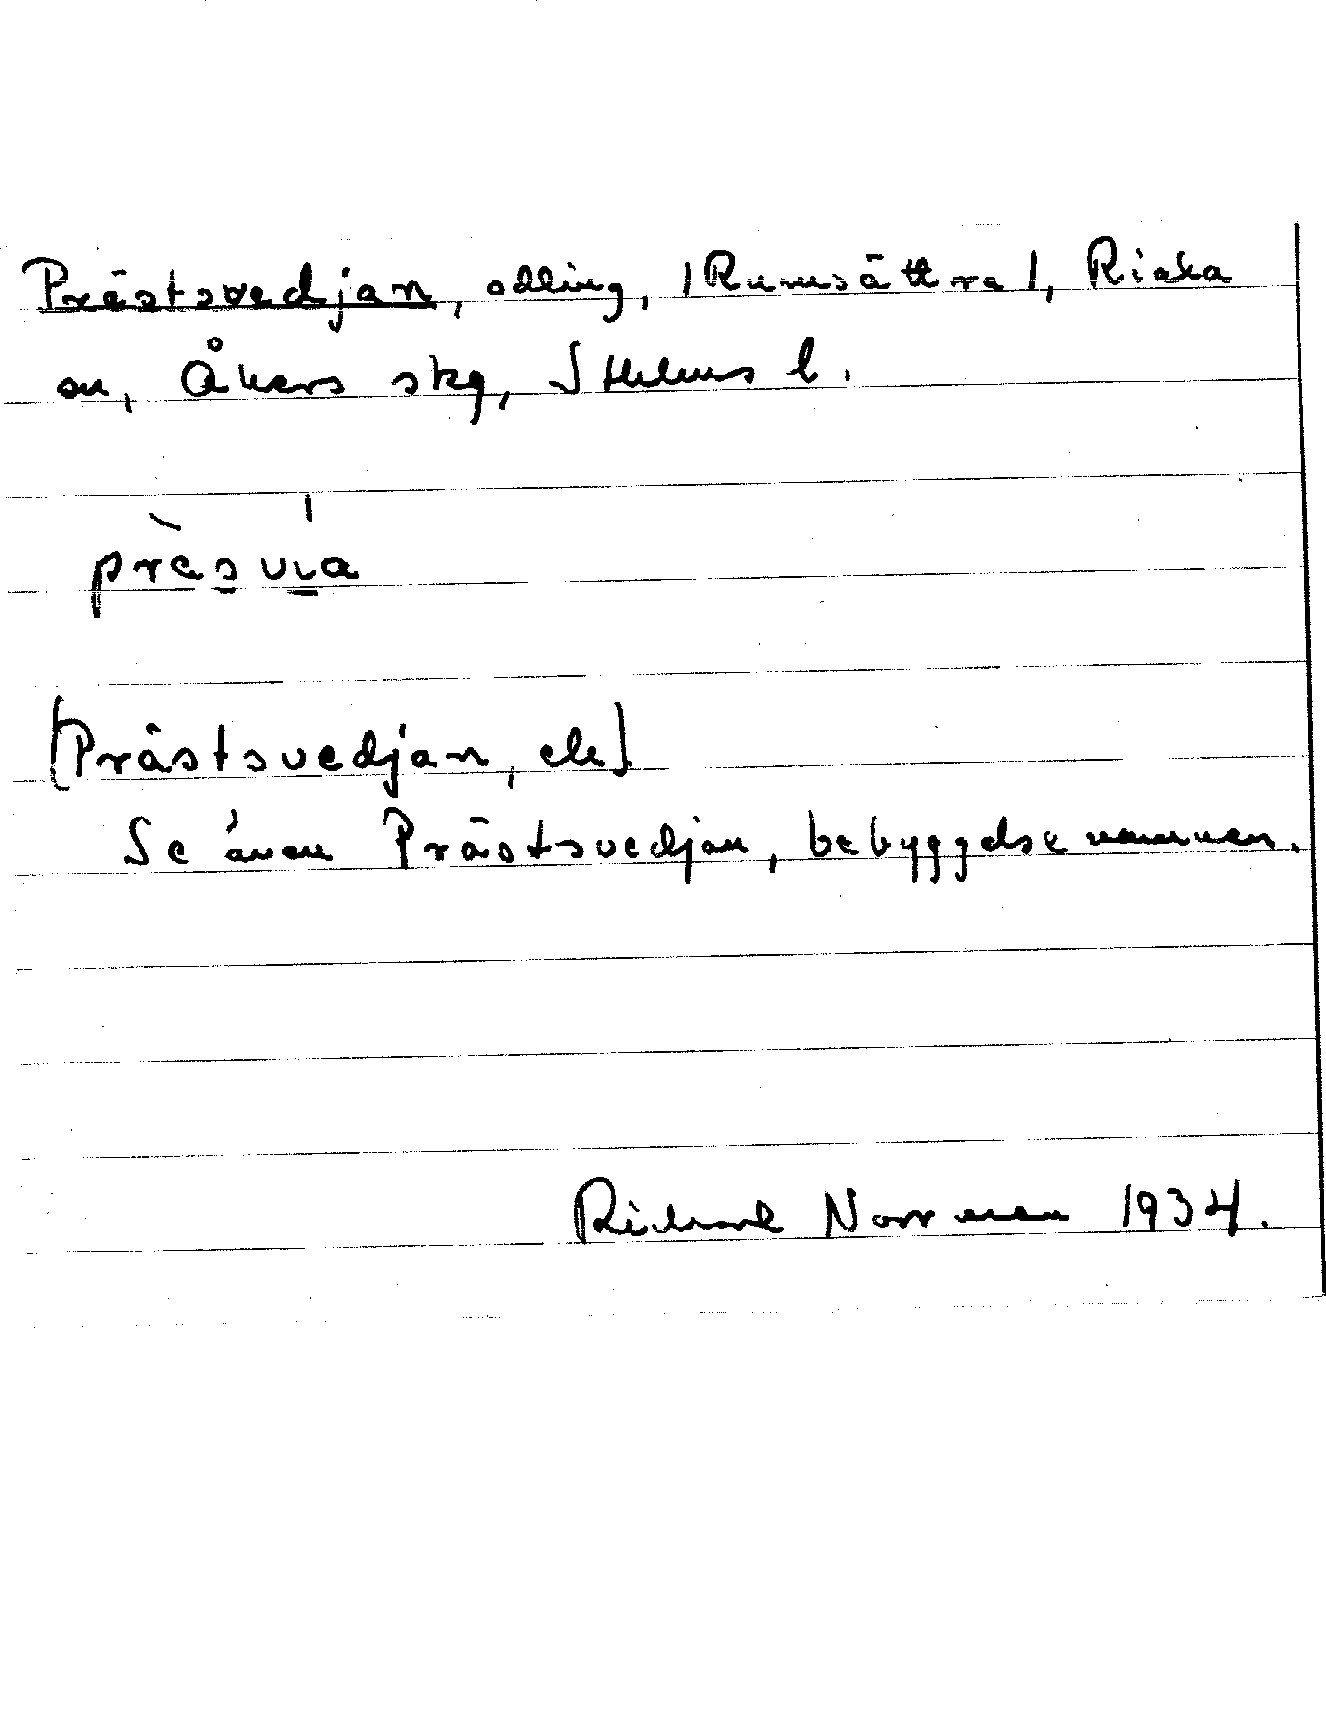 Prästsvedjan, odling, /Rumsättra/, Riala
sn, Åkers skg, Sthlms l.
prèsvìa
[Prästsvedjan, ek]
Se även Prästsvedjan, bebyggelsenamnen.
Richard Norrman 1934.